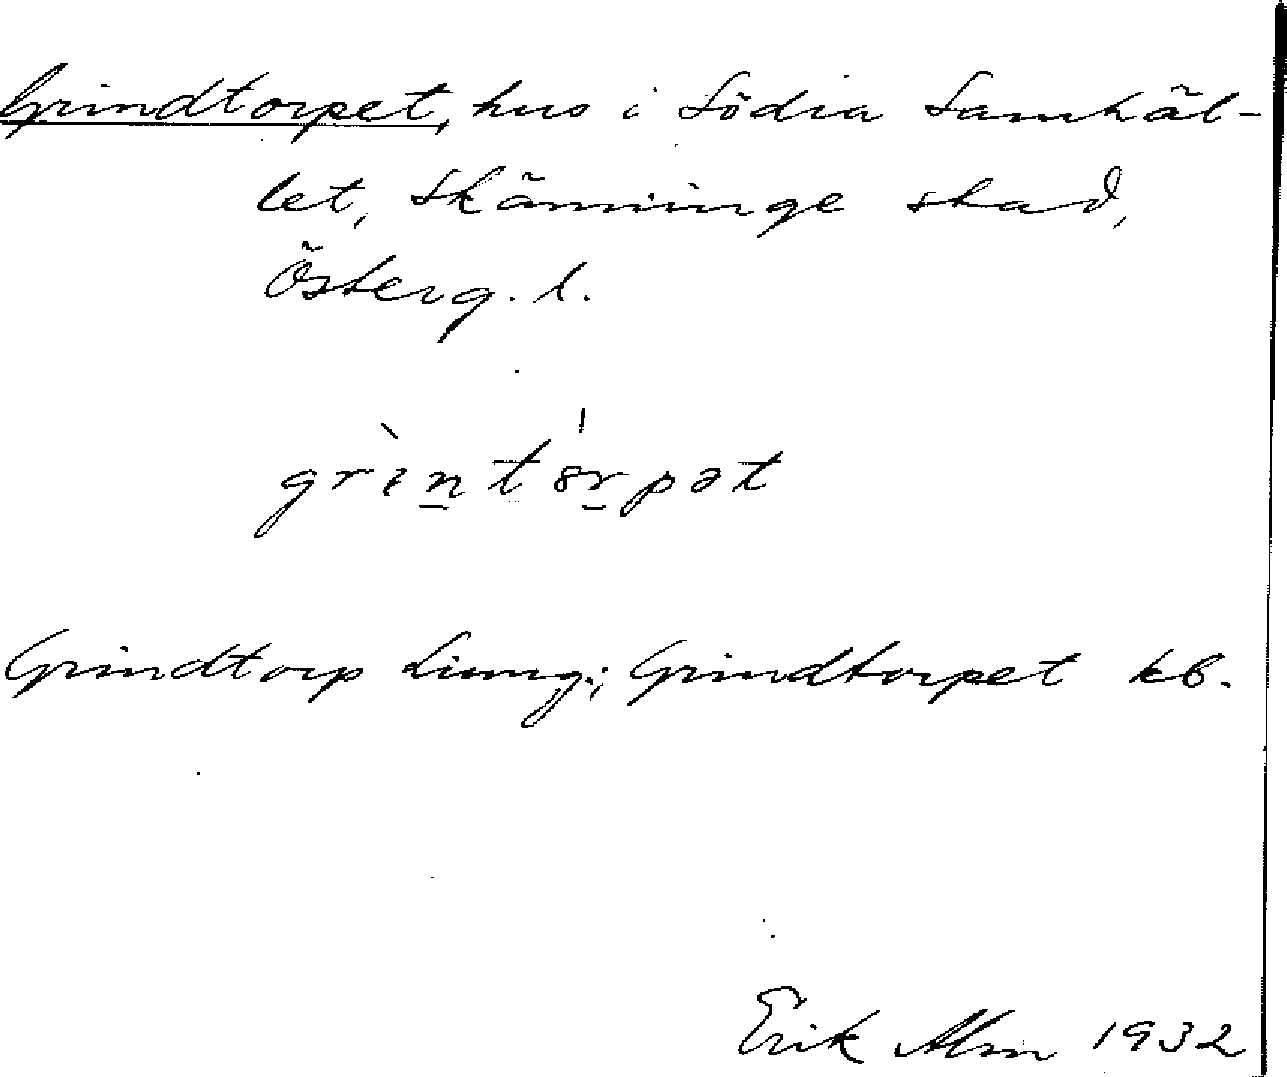 Grindtorpet, hus i Södra Samhäl-
let, Skänninge stad,
Österg. l.
grìntórpət
Grindtorp Liung.; Grindtorpet kb.
Erik Alm 1932